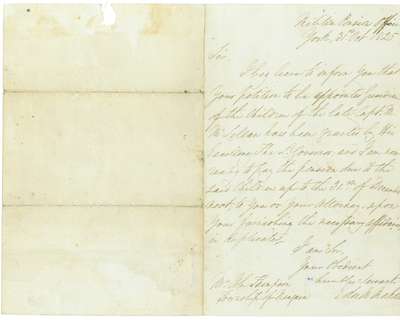 Militia Pension Office
York, 31st Oct 1825
Sir
I beg leave to inform you that
Your Petition to be appointed Guardian
of the Children of the late Capt. D.
McLellan has been granted by His
Excellency The Lt. Governor, and I am now
ready to pay the pension due to the
said Children up to the 31st of December
next to you or your Attorney, upon
your furnishing the necessary affidavits
in duplicate.
I am Sir,
Your Obedient
humble Servant
Mr. Jn.
Township of